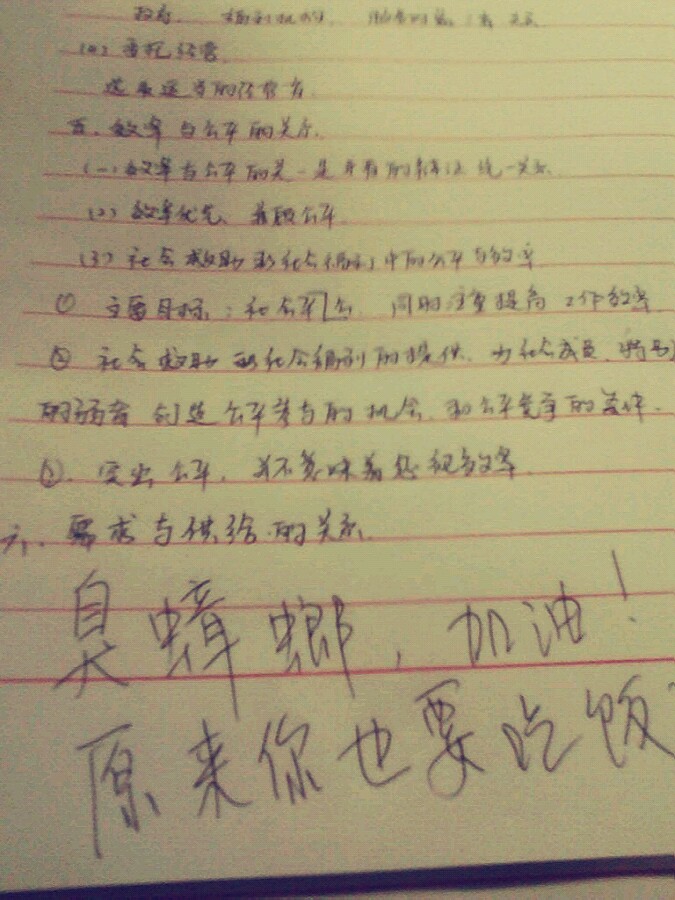 (4) 委托经营
选取适当的经营方
五、效率与公平的关系
(一) 效率与公平的关 是矛盾的 统一关系
(2) 效率优先、兼顾公平
(3) 社会救助和社会福利中的公平与效率
① 主要目标:社会公 同时注重提高工作效率
② 社会救助和社会福利的提供,为社会成员,特别
的弱者 创造公平参与的机会,和公平竞争的条件.
突出公平,并不意味着忽视效率
六、需求与供给的关系
臭蟑螂,加油!
原来你也要吃饭